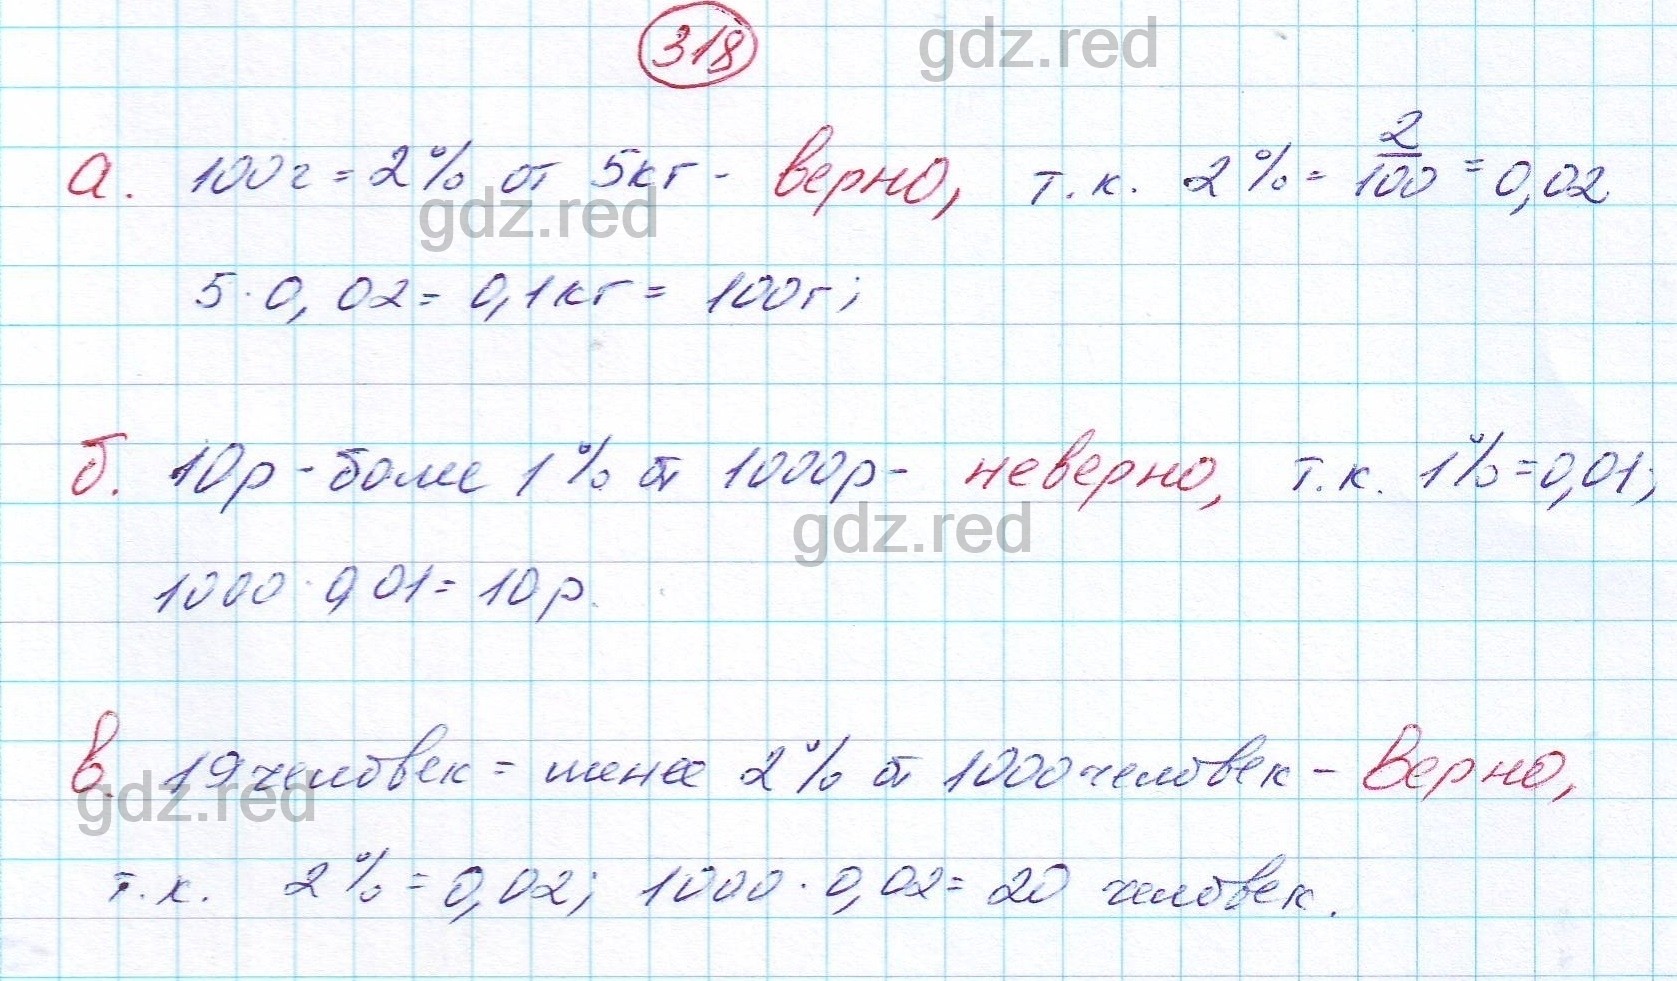 318
gdz.red
а. 100г = 2% от 5кг - верно, т.к. 2% = 2/100 = 0,02
gdz.red
5 · 0,02 = 0,1кг = 100г;
б. 10р - более 1% от 1000р - неверно, т.к. 1% = 0,01;
gdz.red
1000 · 0,01 = 10р.
в. 19 человек = менее 2% от 1000 человек - Верно,
gdz.red
т.к. 2% = 0,02; 1000 · 0,02 = 20 человек.